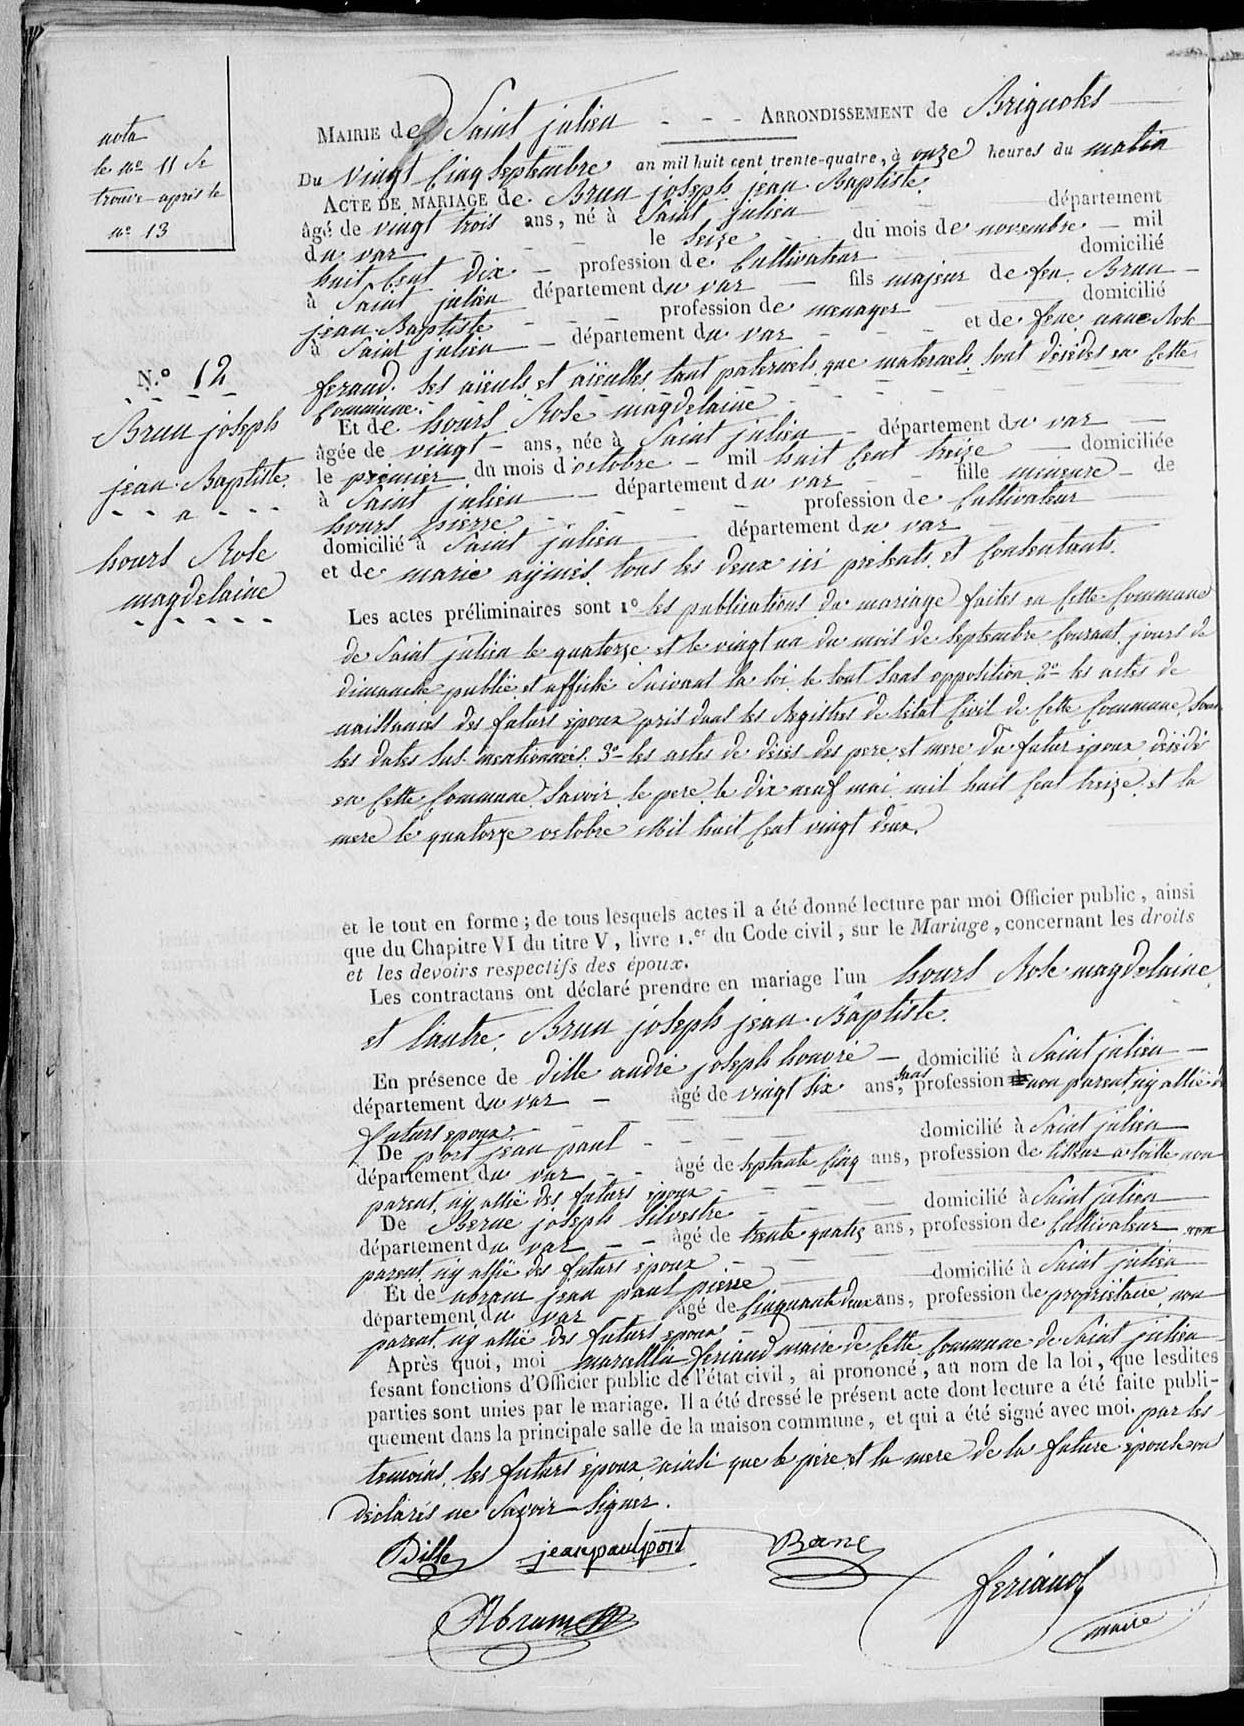 nota
le nº 11 se
trouve après le
nº 13
MAIRIE de Saint julien - - - ARRONDISSEMENT de Brignoles
Du vingt cinq septembre an mil huit cent trente-quatre, à onze heures du matin
ACTE DE MARIAGE de Brun joseph jean Baptiste
âgé de vingt trois ans, né à Saint julien département
du var le seize du mois de novembre mil
huit Cent Dix profession de Cultivateur domicilié
à Saint julien département du var fils majeur de feu Brun
jean Baptiste profession de menager domicilié
à Saint julien département du var et de feue anne Rose
feraud. les aïeuls et aïeulles tant paternels que maternels sont décédés en cette
Commune.
N.º 12
Brun joseph
jean Baptiste
a
hours Rose
magdelaine
Et de hours Rose magdelaine
âgée de vingt ans, née à Saint julien département du var
le premier du mois d'octobre mil huit Cent treize domiciliée
à Saint julien département du var fille mineure de
hours pierre profession de Cultivateur
domicilié à Saint julien département du var
et de marie aymés tous les deux ici présents et Consentants.
Les actes préliminaires sont 1º les publications du mariage faites en Cette Commune
de Saint julien le quatorze et le vingt un du mois de Septembre Courant jours de
dimanche publié et affiché Suivant la loi le tout Sans opposition 2º les actes de
naissances des futurs époux pris dans les Registres de l'état Civil de Cette Commune, Sous
les dates sus mentionnées. 3º les actes de décès des pere et mere du futur époux décédé
en Cette Commune Savoir le pere le dix neuf mai mil huit Cent treize et la
mere le quatorze octobre Mil huit Cent vingt deux.
et le tout en forme; de tous lesquels actes il a été donné lecture par moi Officier public, ainsi
que du Chapitre VI du titre V, livre 1.er du Code civil, sur le Mariage, concernant les droits
et les devoirs respectifs des époux.
Les contractans ont déclaré prendre en mariage l'un hours Rose magdelaine
et l'autre Brun joseph jean Baptiste.
En présence de dille andré joseph honoré domicilié à Saint julien
département du var âgé de vingt six ans, sans profession non parent ny allié des
futurs epoux
De port jean paul domicilié à Saint julien
département du var âgé de septante Cinq ans, profession de tisseur a toille non
parent ny allié des futurs époux
De Berne joseph Silvestre domicilié à Saint julien
département du var âgé de trente quatre ans, profession de Cultivateur non
parent ny allié des futurs époux
Et de abram jean paul pierre domicilié à Saint julien
département du var âgé de Cinquante deux ans, profession de propriétaire non
parent ny allié des futurs epoux
Après quoi, moi marcellin feriaud maire de Cette Commune de Saint julien
fesant fonctions d'Officier public de l'état civil, ai prononcé, au nom de la loi, que lesdites
parties sont unies par le mariage. Il a été dressé le présent acte dont lecture a été faite publi-
quement dans la principale salle de la maison commune, et qui a été signé avec moi par les
temoins, les futurs époux, ainsi que le père et la mere de la future épouse ont
déclarés ne Savoir Signer.
Dille jean paul port Berne
feriaud
maire
Abram